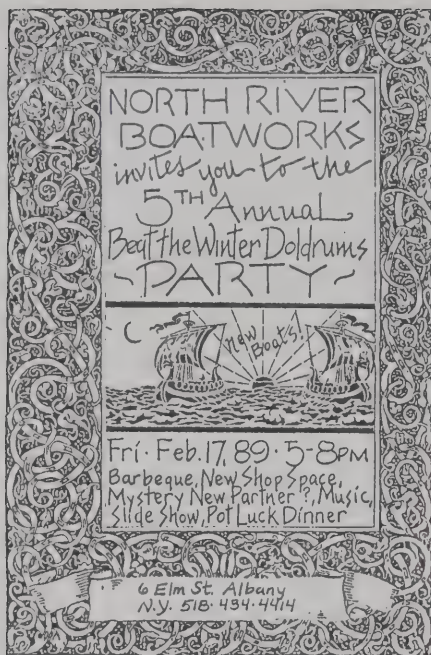 NORTH RIVER
BOATWORKS
invites you to the
5TH Annual
Beat the Winter Doldrums
~PARTY~
New Boats!
Fri· Feb. 17, 89 · 5-8PM
Barbeque, New Shop Space,
Mystery New Partner?, Music,
Slide Show, Pot Luck Dinner
6 Elm St. Albany
N.Y. 518· 434-4414